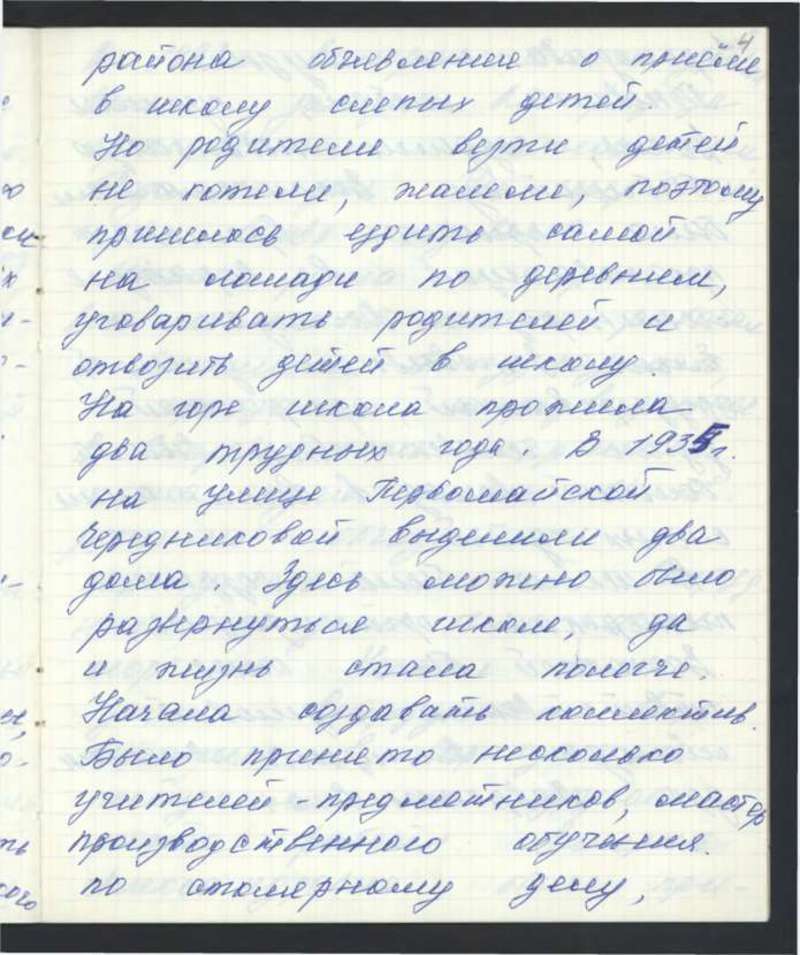 4
района объявление о приёме
в школу слепых детей.
Но родители везти детей
не хотели, жалели, поэтому
пришлось ездить самой
на лошади по деревням,
уговаривать родителей и
отвозить детей в школу.
На горе школа прожила
два трудных года. В 1935 г.
на улице Первомайской
Чередниковой выделили два
дома. Здесь можно было
развернуться школе, да
и жизнь стала полегче.
Начала создавать коллектив.
Было принято несколько
учителей-предметников, мастер
производственного обучения
по столярному делу,